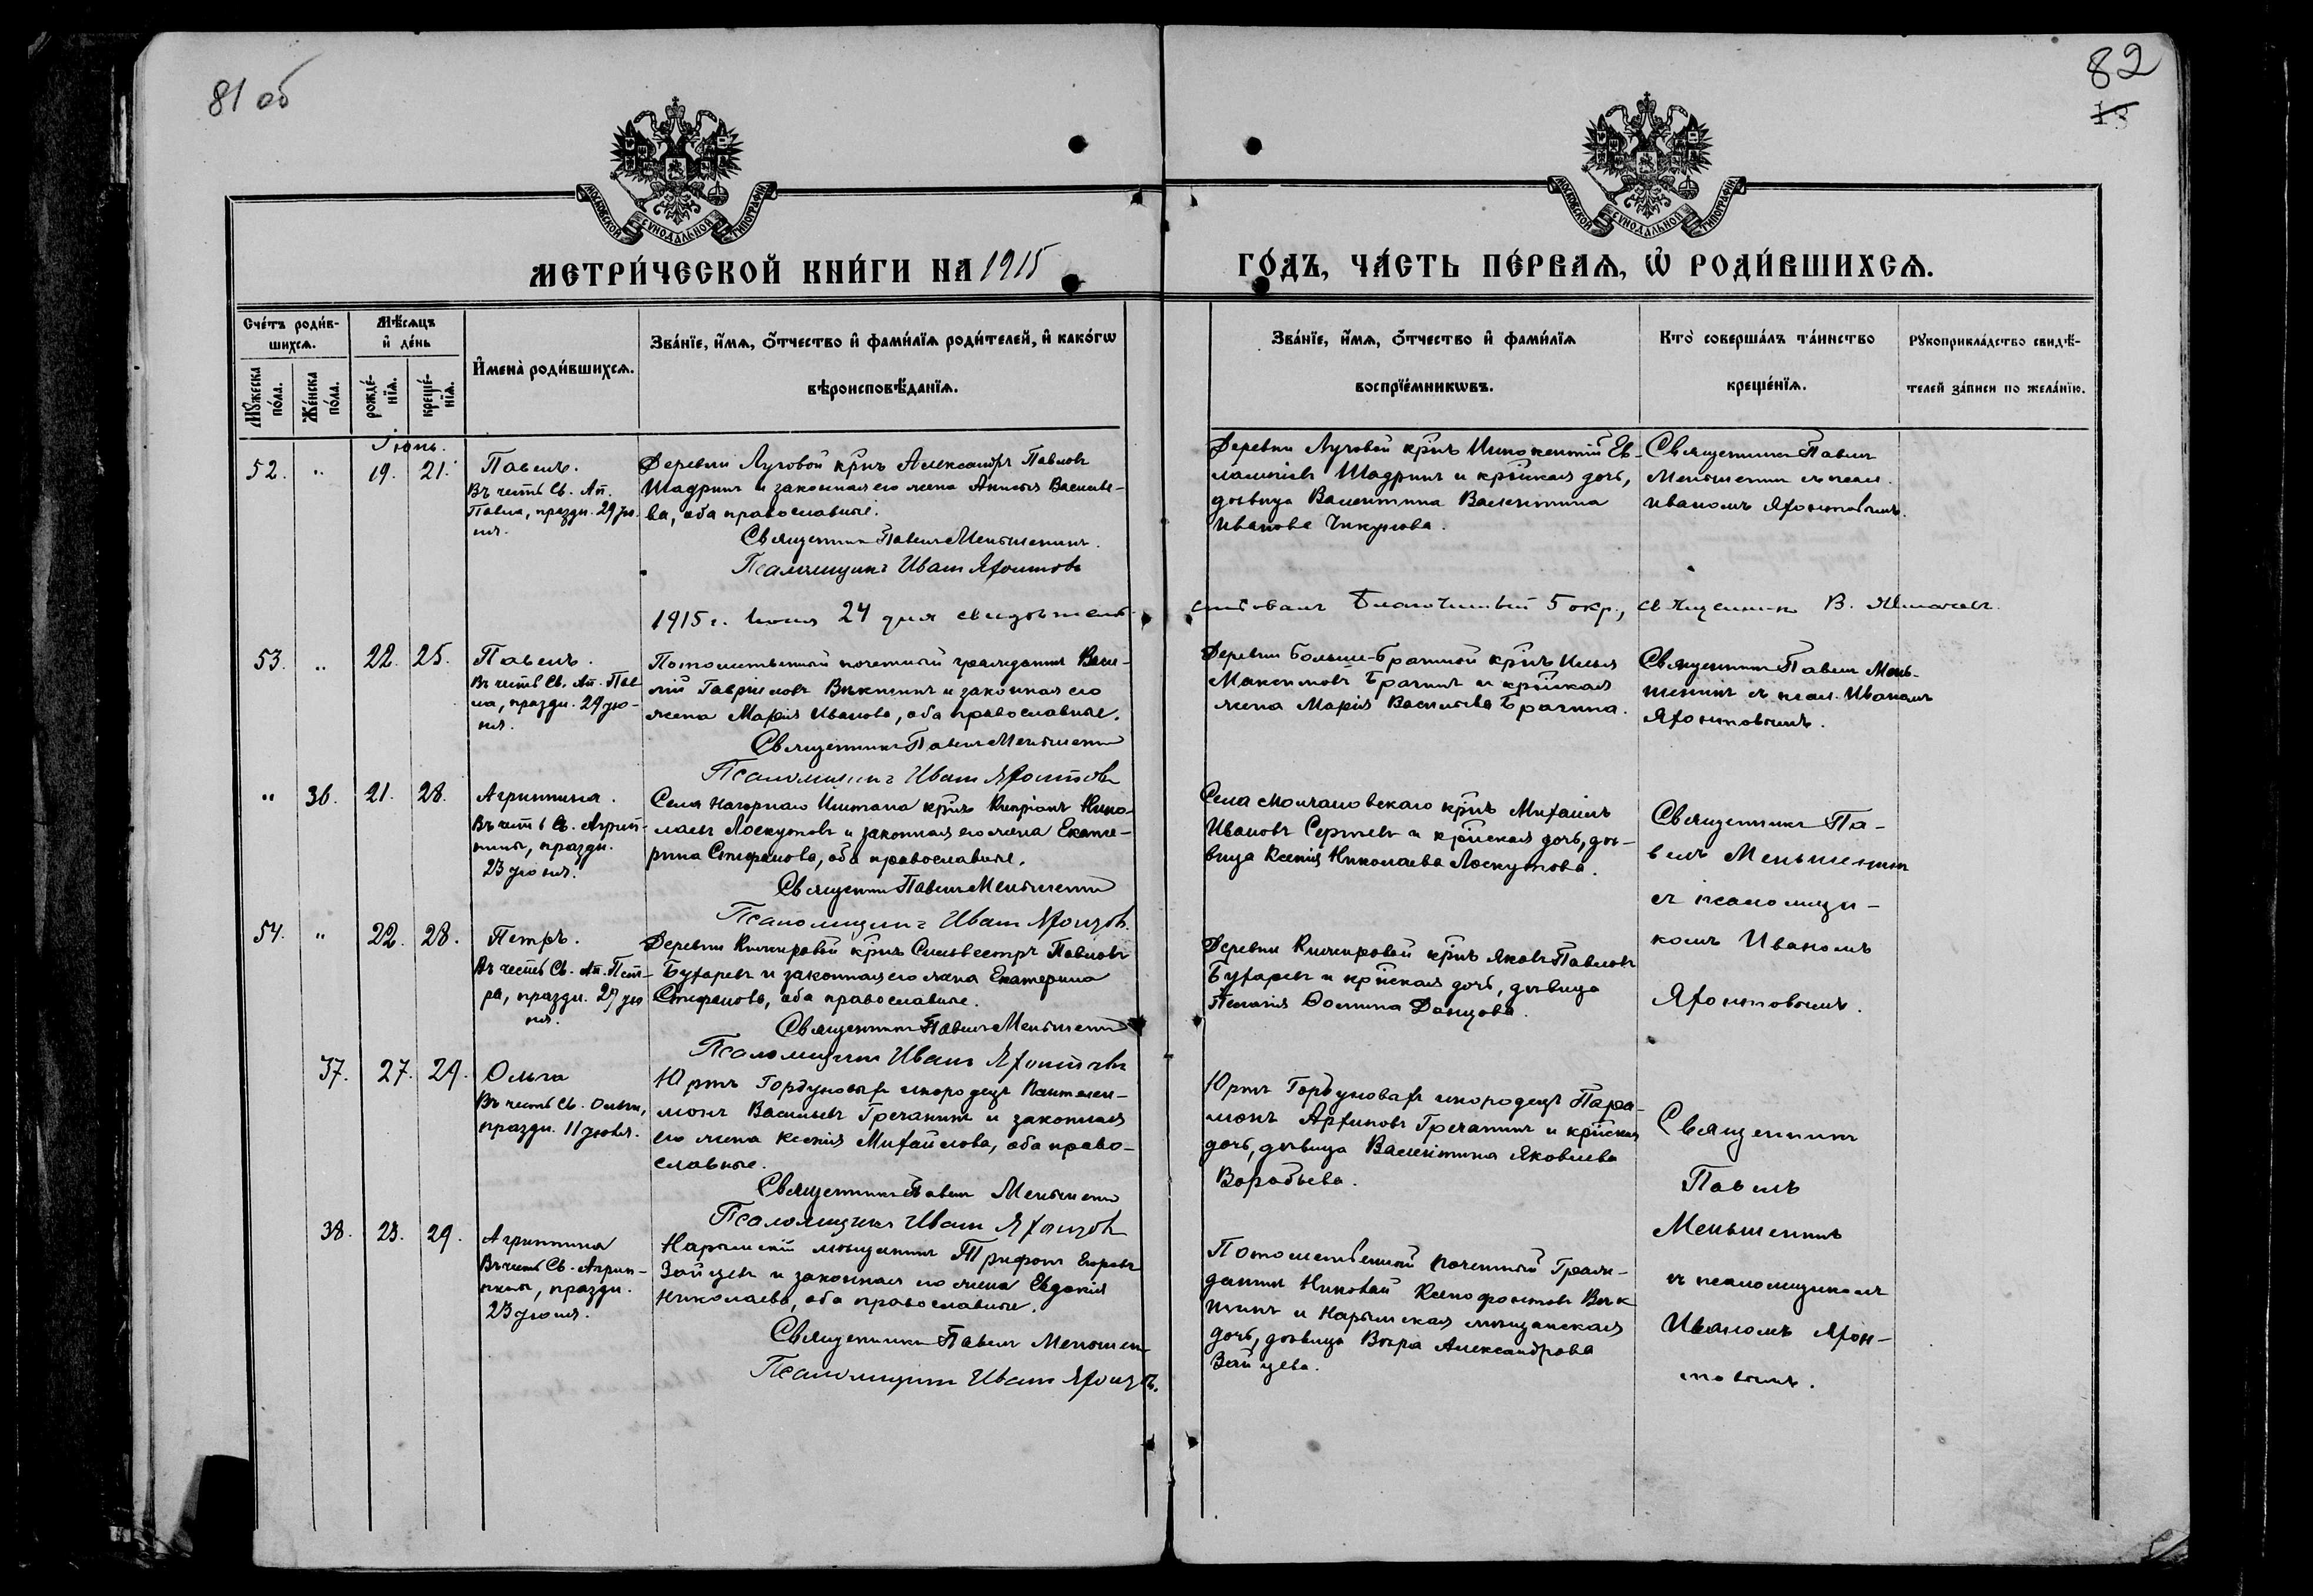 81 об
82
13
МОСКОВСКОЙ СѴНОДАЛЬНОЙ ТИПОГРАФІИ
МОСКОВСКОЙ СѴНОДАЛЬНОЙ ТИПОГРАФІИ
МЕТРИ́ЧЕСКОЙ КНИ́ГИ НА 1915
ГО́ДЪ, ЧА́СТЬ ПЕ́РВАѦ, Ѽ РОДИ́ВШИХСѦ.
Сче́тъ роди́в-
шихсѧ.
Мѣ́сѧцъ
и҆ де́нь
Мꙋ́жеска по́ла.
Же́нска по́ла.
рожде́-
нїѧ.
креще́-
нїѧ.
И҆мена̀ роди́вшихсѧ.
Зва́нїе, и҆́мѧ, ѻ҆́тчество и҆ фами́лїѧ роди́телей, и҆ како́гѡ
вѣроисповѣ́данїѧ.
Зва́нїе, и҆́мѧ, ѻ҆́тчество и҆ фами́лїѧ
воспрїе́мникѡвъ.
Кто̀ соверша́лъ та́инство
креще́нїѧ.
Рꙋкоприкла́дство свидѣ́-
телей за́писи по жела́нїю.
Іюнь.
52. " 19. 21. Павелъ.
Въ честь Св. Ап.
Павла, праздн. 29 ію-
ня.
Деревни Луговой крнъ Александръ Павловъ
Шадринъ и законная его жена Анисья Василье-
ва, оба православные.
Священникъ Павелъ Меньшенинъ.
Псаломщикъ Иванъ Яфонтовъ
Деревни Луговой крнъ Иннокентій Ев-
лампіевъ Шадринъ и крнская дочь,
дѣвица Валентина Валентина
Иванова Чикунова.
Священникъ Павелъ
Меньшенинъ съ псал.
Иваномъ Яфонтовымъ.
1915 г. Іюня 24 дня свидѣтель-
ствовалъ Благочинный 5 окр., священникъ В.
53. " 22. 25. Павелъ.
Въ честь Св. Ап. Пав-
ла, праздн. 29 ію-
ня.
Потомственный почетный гражданинъ Васи-
лій Гавріиловъ Вѣкшинъ и законная его
жена Марія Иванова, оба православные.
Священникъ Павелъ Меньшенинъ
Псаломщикъ Иванъ Яфонтовъ
Деревни Больше-Брагиной крнъ Илья
Максимовъ Брагинъ и крнская
жена Марія Васильева Брагина.
Священникъ Павелъ Мень-
шенинъ съ псал. Иваномъ
Яфонтовымъ.
" 36. 21. 28. Агриппина.
Въ честь Св. Агрип-
пины, праздн.
23 іюня.
Села Нагорнаго Иштана крнъ Кипріанъ Нико-
лаевъ Лоскутовъ и законная его жена Екате-
рина Стефанова, оба православные.
Священникъ Павелъ Меньшенинъ
Псаломщикъ Иванъ Яфонтовъ.
Села Молчановскаго крнъ Михаилъ
Ивановъ Сергѣевъ и крнская дочь, дѣ-
вица Ксенія Николаева Лоскутова.
Священникъ Па-
велъ Меньшенинъ
съ псаломщи-
комъ Иваномъ
Яфонтовымъ.
54. " 22. 28. Петръ.
Въ честь Св. Ап. Пет-
ра, праздн. 29 ію-
ня.
Деревни Кижировой крнъ Сильвестръ Павловъ
Бухаревъ и законная его жена Екатерина
Стефанова, оба православные.
Священникъ Павелъ Меньшенинъ
Псаломщикъ Иванъ Яфонтовъ
Деревни Кижировой крнъ Яковъ Павловъ
Бухаревъ и крнская дочь, дѣвица
Пелагія Ѳомина Данцова.
37. 27. 29. Ольга
Въ честь Св. Ольги,
праздн. 11 іюля.
Юртъ Горбуновыхъ инородецъ Пантелей-
монъ Васильевъ Гречанинъ и законная
его жена Ксенія Михайлова, оба право-
славные.
Священникъ Павелъ Меньшенинъ
Псаломщикъ Иванъ Яфонтовъ
Юртъ Горбуновыхъ инородецъ Пара-
монъ Архиповъ Гречанинъ и крнская
дочь, дѣвица Валентина Яковлева
Воробьева.
Священникъ
Павелъ
Меньшенинъ
съ псаломщикомъ
Иваномъ Яфон-
товымъ.
38. 23. 29. Агриппина
Въ честь Св. Агрип-
пины, праздн.
23 іюня.
Нарымскій мѣщанинъ Трифонъ Егоровъ
Зайцевъ и законная его жена Евдокія
Николаева, оба православные.
Священникъ Павелъ Меньшен
Псаломщикъ Иванъ Яфонтовъ.
Потомственный почетный граж-
данинъ Николай Ксенофонтовъ Вѣк-
шинъ и Нарымская мѣщанская
дочь, дѣвица Вѣра Александрова
Зайцева.